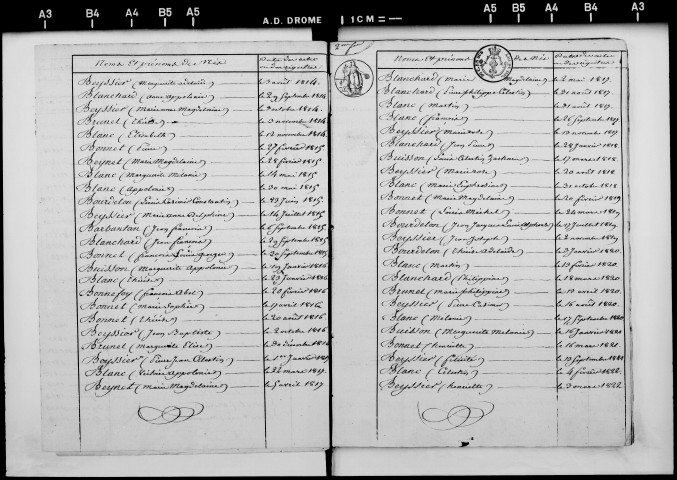 A3 B4 A4 B5 A5 A.D. DROME 1 CM A5 B5 A4 B4 A3
Noms Et prénoms des Nés
Beyssier (marguerite adelaide) le 3 août 1814.
Blanchard (anne appolonie) le 29 Septembre 1814
Beyssier (marie anne Magdelaine) le 3 octobre 1814.
Brunet (thérèse) 9 novembre 1814
Blanc (Elisabeth) le 12 novembre 1814
Bonnet (Pierre) le 27 février 1815
Reynet (Marie Magdelaine) le 28 février 1815
Blanc (Marguerite Melanie) le 14 mai 1815
Blanc (appolonie) le 30 mai 1815
Bourdelon (Louis Casimir Constantin) le 23 juin 1815
Beyssier (Marie anne Delphine) le 14 Juillet 1815
Barbantan (Jean françois) le 6 Septembre 1815
Blanchard (Jean françois) le 29 Septembre 1815
Bonnet (françois Louis Georges) le 30 Septembre 1815
Buisson (Marguerite Appolonie) Janvier 1816
Blanc (thérèse) le 29 Janvier 1816
Bonnefoy (françois Abel) le 28 février 1816
Bonnet (marie Sophie) le 17 avril 1816
Bonnet (thérèse) le 20 août 1816
Beyssier (Jean Baptiste) le 2 octobre 1816
Brunet (marguerite Elise) le 30 décembre 1816
Beyssier (Pierre Jean Célestin) le 1er Janvier 1817
Blanc (Victoire Appolonie) le 22 mars 1817.
Reynet (marie Magdelaine) le 5 avril 1817
Noms Et prénoms Des Nés
Blanchard (marie Magdelaine) le 2 mai 1817
Blanchard (Pierre philippe Célestin) le 31 août 1817
Blanc (Martin) le 31 août 1817.
Blanc (françois) le 26 Septembre 1817
Beyssier (marie rose) le 19 novembre 1817.
Blanchard (Jean Pierre) le 28 Janvier 1818
Buisson (Louis Célestin Zacharie) le 17 mars 1818
Beyssier (Marie rose) le 20 août 1818
Blanc (marie Euphrosine) le 31 octobre 1818
Bonnet (Marie Magdelaine) le 20 février 1819
Bonnet (Louis Michel) le 24 mars 1819
Bourdelon (Jean Jacques Louis Alphonse) le 17 Juillet 1819
Beyssier (Jean Joseph) le 2 novembre 1819
Bourdelon (thérèse Adelaide) le 3 Janvier 1820
Blanc (Martin) le 13 février 1820
Blanchard (Philippine) le 18 mars 1820
Brunet (marie philippine) le 10 avril 1820
Beyssier (Pierre) le 16 août 1820.
Blanc (Mélanie) le 17 Septembre 1820
Buisson (Marguerite Mélanie) le 16 Janvier 1821
Bonnet (henriette) le 16 mars 1821.
Beyssier (félicité) le 10 Septembre 1821
Blanc (Célestin) le 4 février 1822.
Beyssier (henriette) le 3 mars 1822